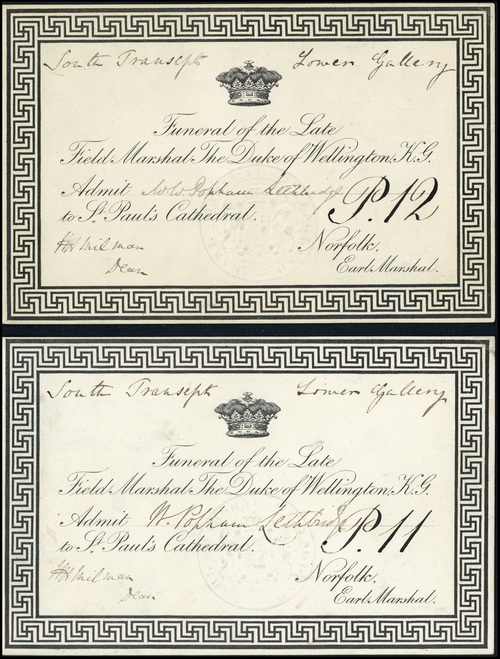 South Transept Lower Gallery
Funeral of the Late
Field Marshal The Duke of Wellington, K.G.
Admit Popham Lethbridge P. 12
to St. Paul's Cathedral.
HH Milman Norfolk,
Dean Earl Marshal.
South Transept Lower Gallery
Funeral of the Late
Field Marshal The Duke of Wellington, K.G.
Admit W. Popham Lethbridge P. 11
to St. Paul's Cathedral.
HH Milman Norfolk,
Dean Earl Marshal.